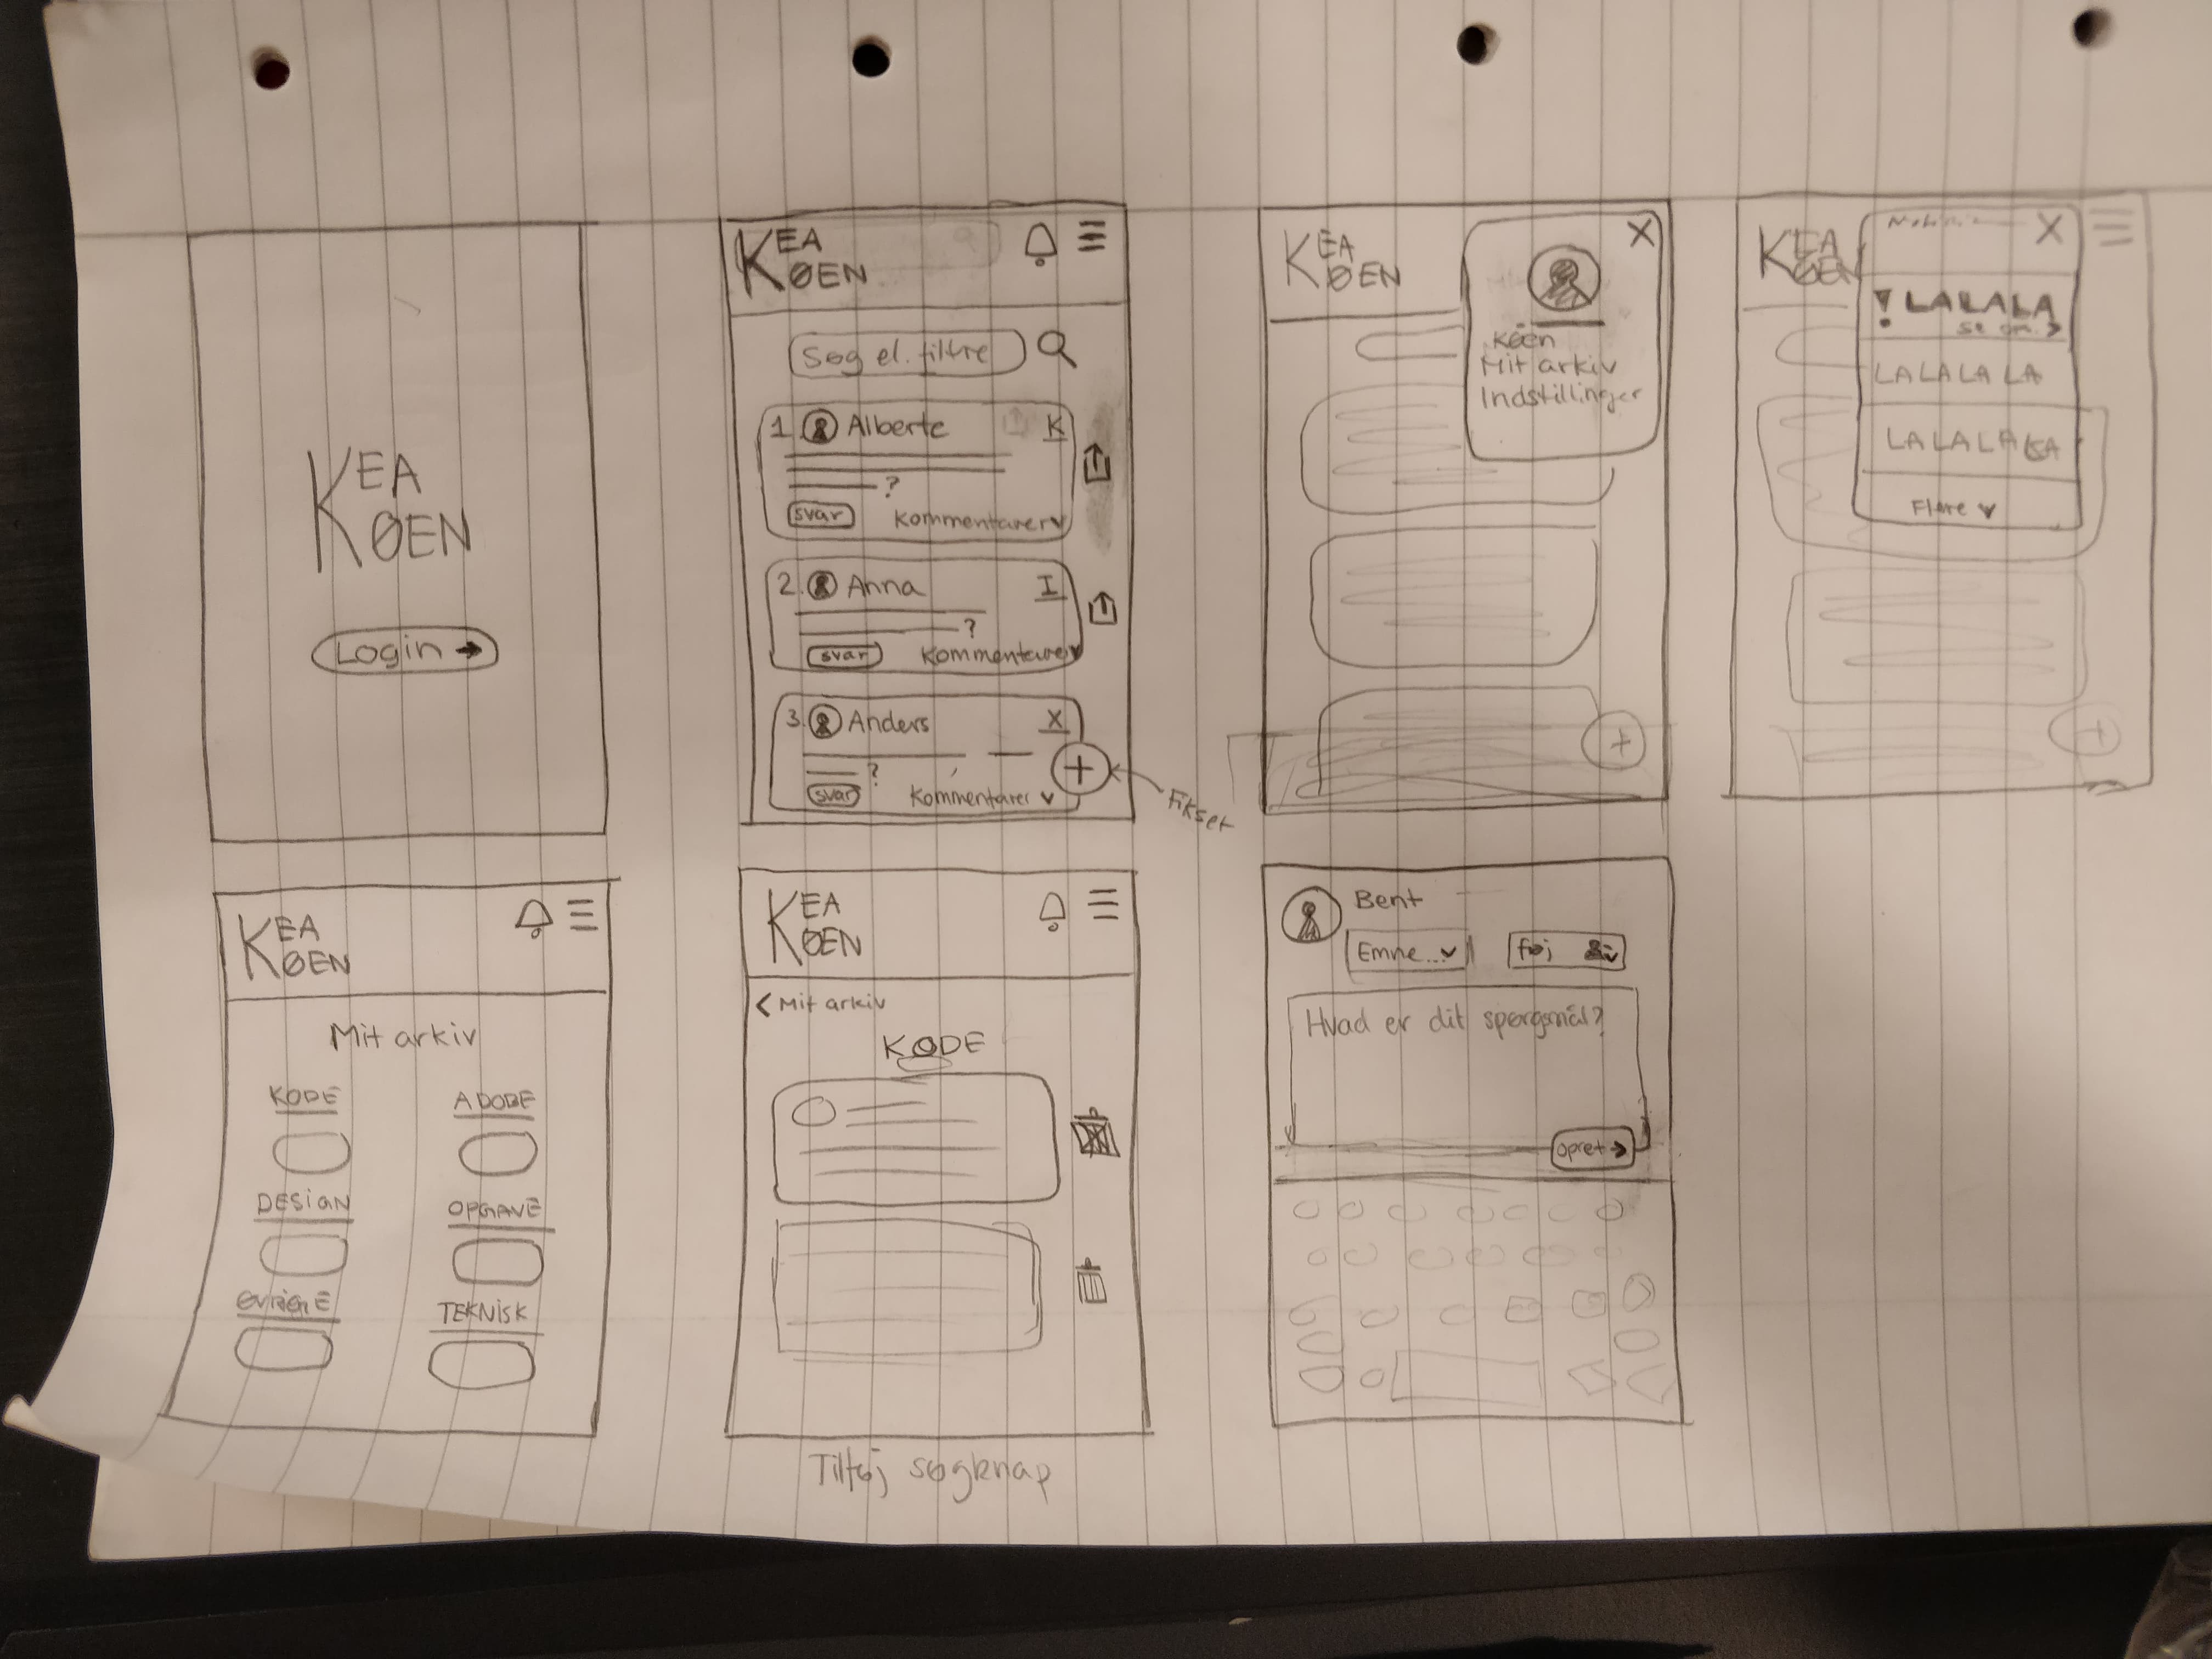 KEA
KØEN
Login →
KEA
KØEN
Søg el. filtre
1. Alberte K
?
svar Kommentarer
2. Anna I
?
svar Kommentarer
3. Anders X
?
svar Kommentarer
+
Fikset
KEA
KØEN
X
Køen
Mit arkiv
Indstillinger
+
KEA
KØEN
X
! LALALA
LALALALA
LALALALA
Flere
+
KEA
KØEN
Mit arkiv
KODE ADOBE
DESIGN OPGAVE
ØVRIGE TEKNISK
KEA
KØEN
< Mit arkiv
KODE
Tilføj søgknap
Bent
Emne... føj
Hvad er dit spørgsmål?
Opret →